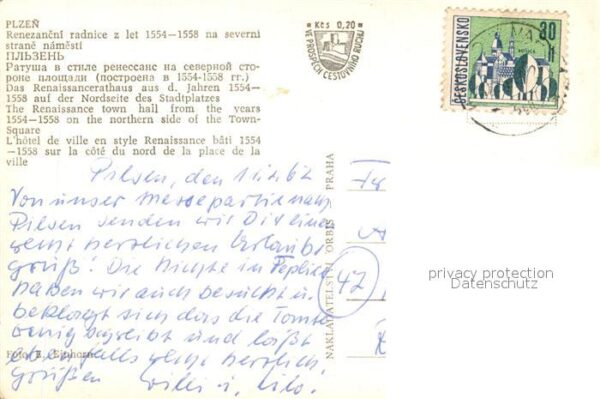 PLZEŇ
Renezanční radnice z let 1554—1558 na severní
straně náměstí
ПЛЬЗЕНЬ
Ратуша в стиле ренессанс на северной сто-
роне площади (построена в 1554-1558 гг.)
Das Renaissancerathaus aus d. Jahren 1554—
1558 auf der Nordseite des Stadtplatzes
The Renaissance town hall from the years
1554—1558 on the northern side of the Town-
Square
L'hôtel de ville en style Renaissance bâti 1554
—1558 sur la côté du nord de la place de la
ville
Kčs 0,20
VE PROSPĚCH CESTOVNÍHO RUCHU
ČESKOSLOVENSKO
30
h
Pilsen, den
Von unser Messepartie nach
Pilsen senden wir Dir einen
recht herzlichen Urlaubs
gruß! Die Nichte in Teplice
haben wir auch besucht u.
beklagt sich dass die Tante
wenig schreibt und läßt
ebenfalls recht herzlich
grüßen Willi u.
Foto E. Einhorn
NAKLADATELSTVÍ ORBIS PRAHA
42
privacy protection
Datenschutz